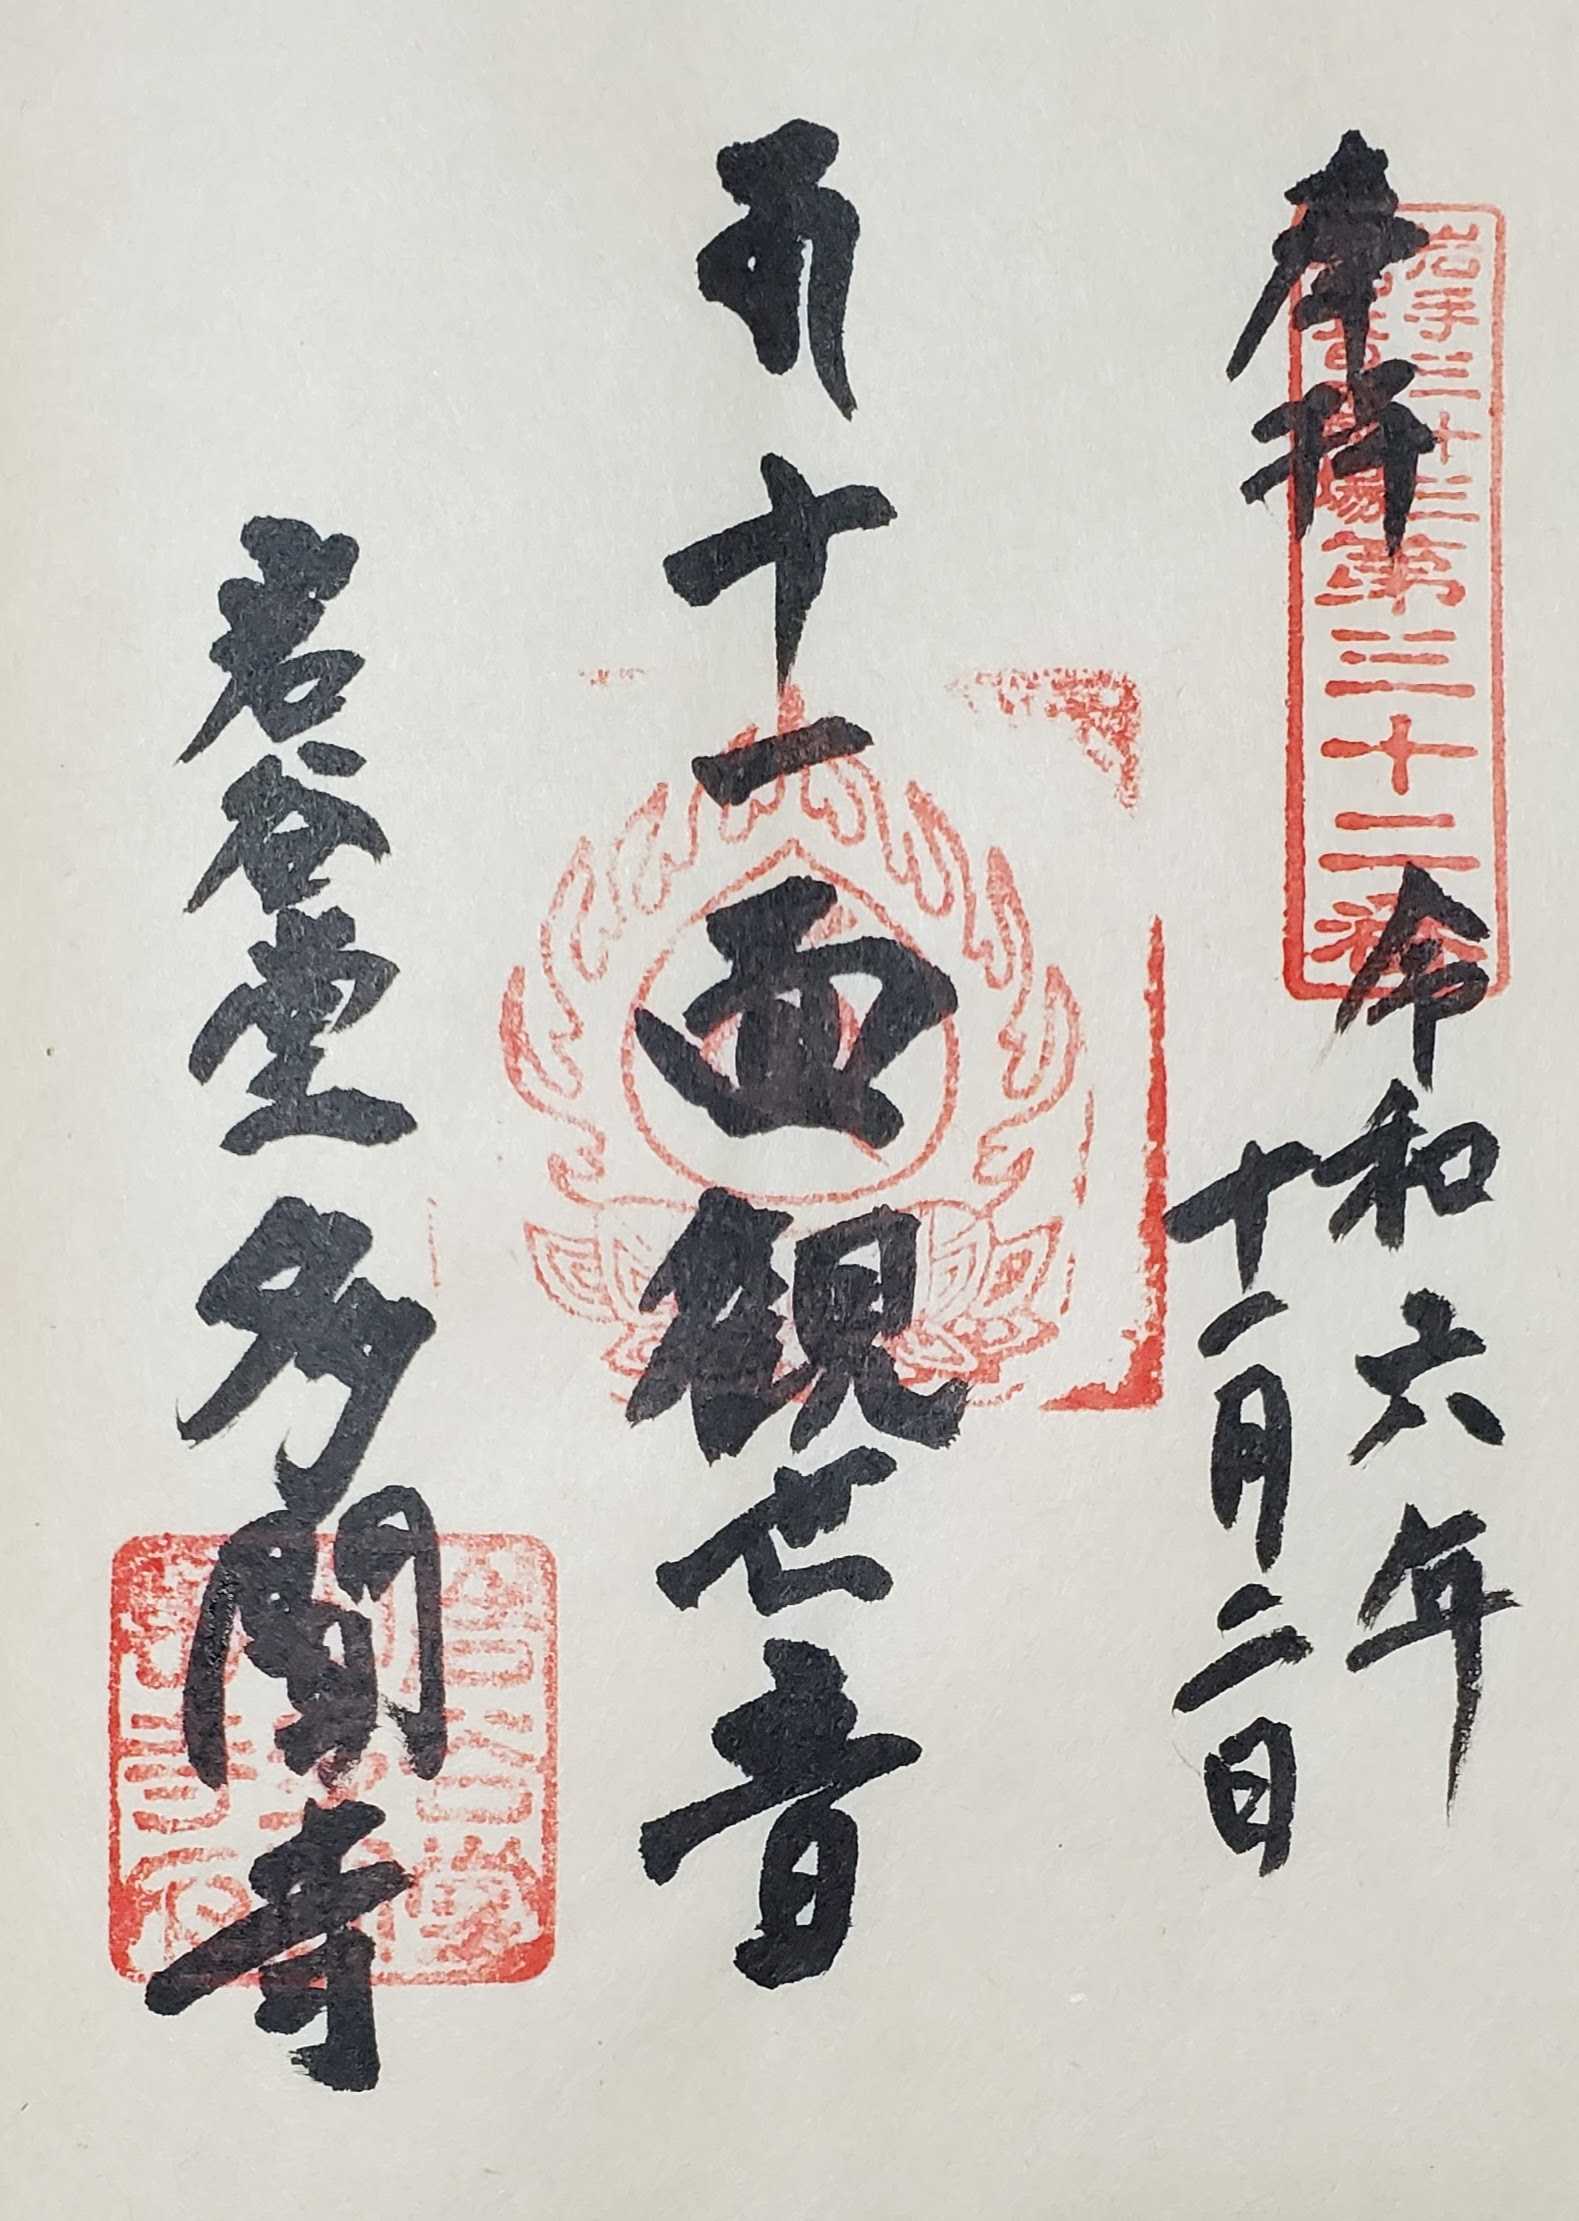 奉拝
岩手三十三
観音霊場
第三十二番
令和六年
十一月二日
十一面観世音
岩谷堂多聞寺